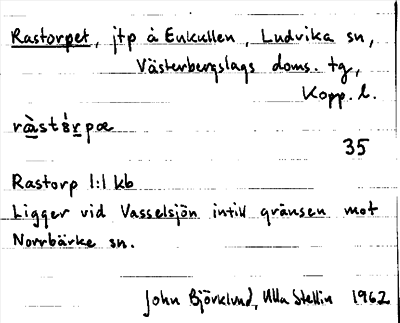 Rastorpet, jtp å Enkullen, Ludvika sn,
Västerbergslags doms. tg,
Kopp. l.
ràstórpæ
35
Rastorp 1:1 kb
Ligger vid Vasselsjön intill gränsen mot
Norrbärke sn.
John Björklund, Ulla Stellin 1962